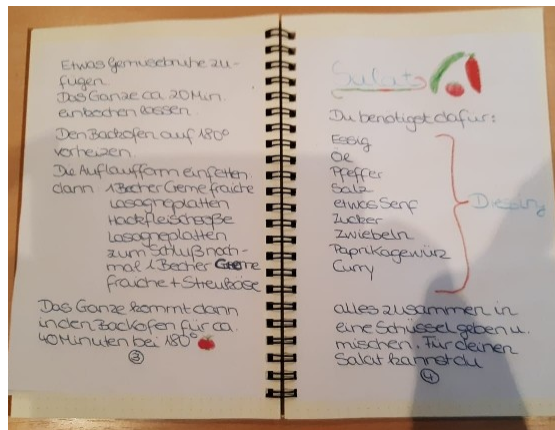 Etwas Gemüsebrühe zu-
fügen.
Das Ganze ca. 20 Min.
einkochen lassen.
Den Backofen auf 180°
vorheizen.
Die Auflaufform einfetten
dann 1 Becher Creme fraiche
Lasagneplatten
Hackfleischsoße
Lasagneplatten
zum Schluß noch-
mal 1 Becher Creme
fraiche + Streukäse
Das Ganze kommt dann
in den Backofen für ca.
40 Minuten bei 180°
3
Salat
Du benötigst dafür:
Essig
Öl
Pfeffer
Salz
etwas Senf
Zucker
Zwiebeln
Paprikagewürz
Curry
Dressing
alles zusammen in
eine Schüssel geben u.
mischen. Für deinen
Salat kannst du
4